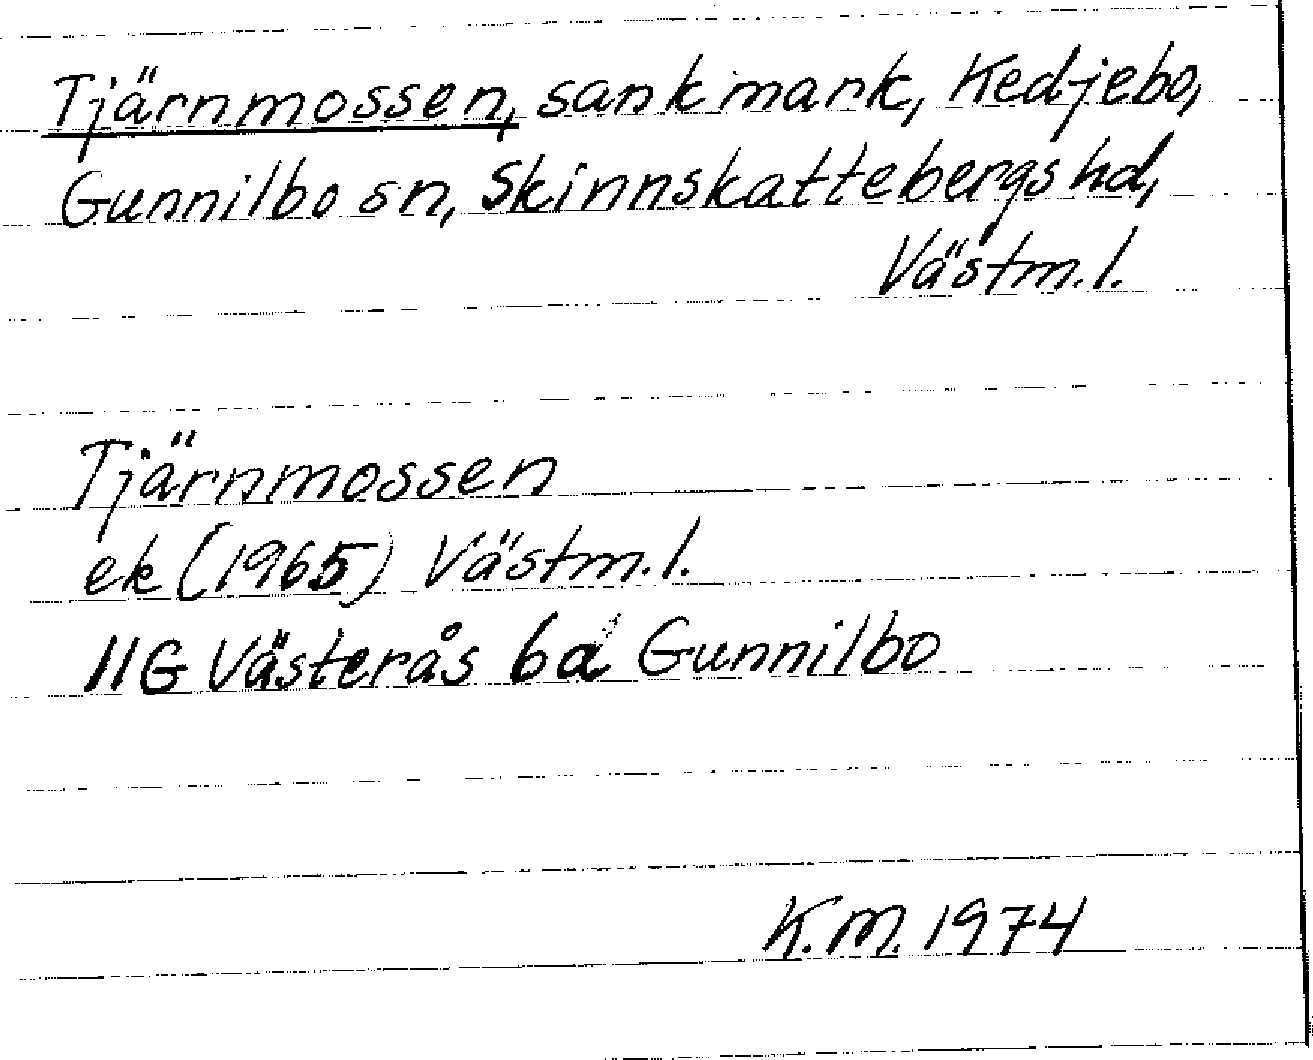 Tjärnmossen, sankmark, Kedjebo,
Gunnilbo sn, Skinnskattebergs hd,
Västm.l.
Tjärnmossen
ek (1965) Västm.l.
11G Västerås 6a Gunnilbo
K.M. 1974